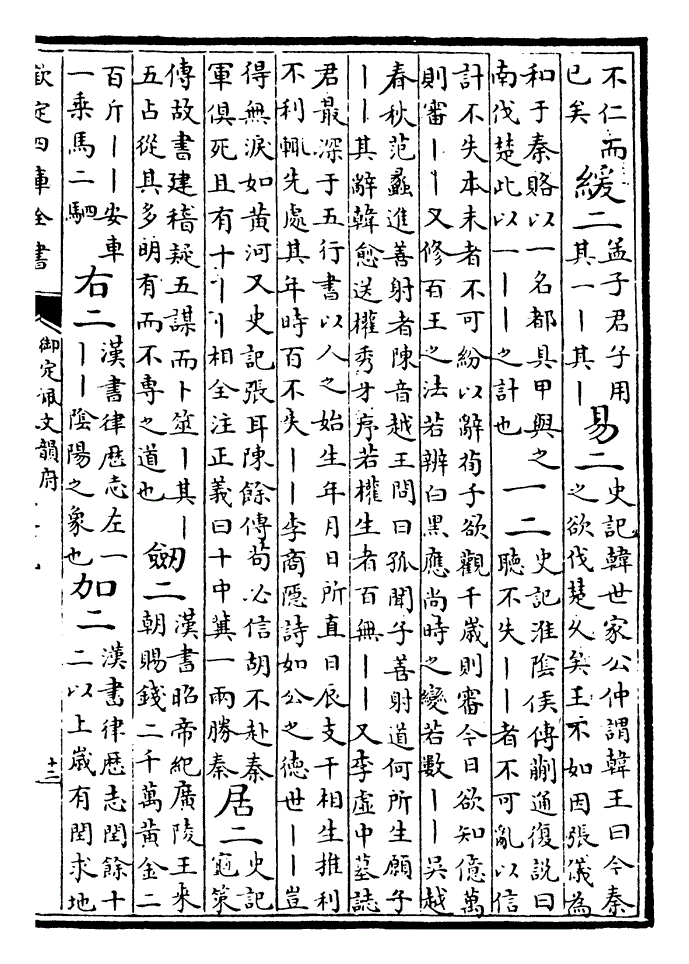 不仁而
已矣
緩二
孟子君子用
其一丨其丨
易二
史記韓世家公仲謂韓王曰今秦
之欲伐楚久矣王不如因張儀為
和于秦賂以一名都具甲與之
南伐楚此以一丨丨之計也
一二
史記淮陰侯傳蒯通復說曰
聽不失丨丨者不可亂以信
計不失本末者不可紛以辭荀子欲觀千歲則審今日欲知億萬
則審丨丨又修百王之法若辨白黑應尚時之變若數丨丨吳越
春秋范蠡進善射者陳音越王問曰孤聞子善射道何所生願子
丨丨其辭韓愈送權秀才序若權生者百無丨丨又李虛中墓誌
君最深于五行書以人之始生年月日所直日辰支干相生推利
不利輒先處其年時百不失丨丨李商隱詩如公之德世丨丨豈
得無淚如黃河又史記張耳陳餘傳茍必信胡不赴秦
軍俱死且有十丨丨相全注正義曰十中冀一兩勝秦
居二
史記
龜策
傳故書建稽疑五謀而卜筮丨其丨
五占從其多明有而不専之道也
劒二
漢書昭帝紀廣陵王来
朝賜錢二千萬黃金二
百斤丨丨安車
一乘馬二駟
右二
漢書律歴志左一
丨丨陰陽之象也
加二
漢書律歴志閏餘十
二以上歲有閏求地
欽定四庫全書
御定佩文韻府
十三